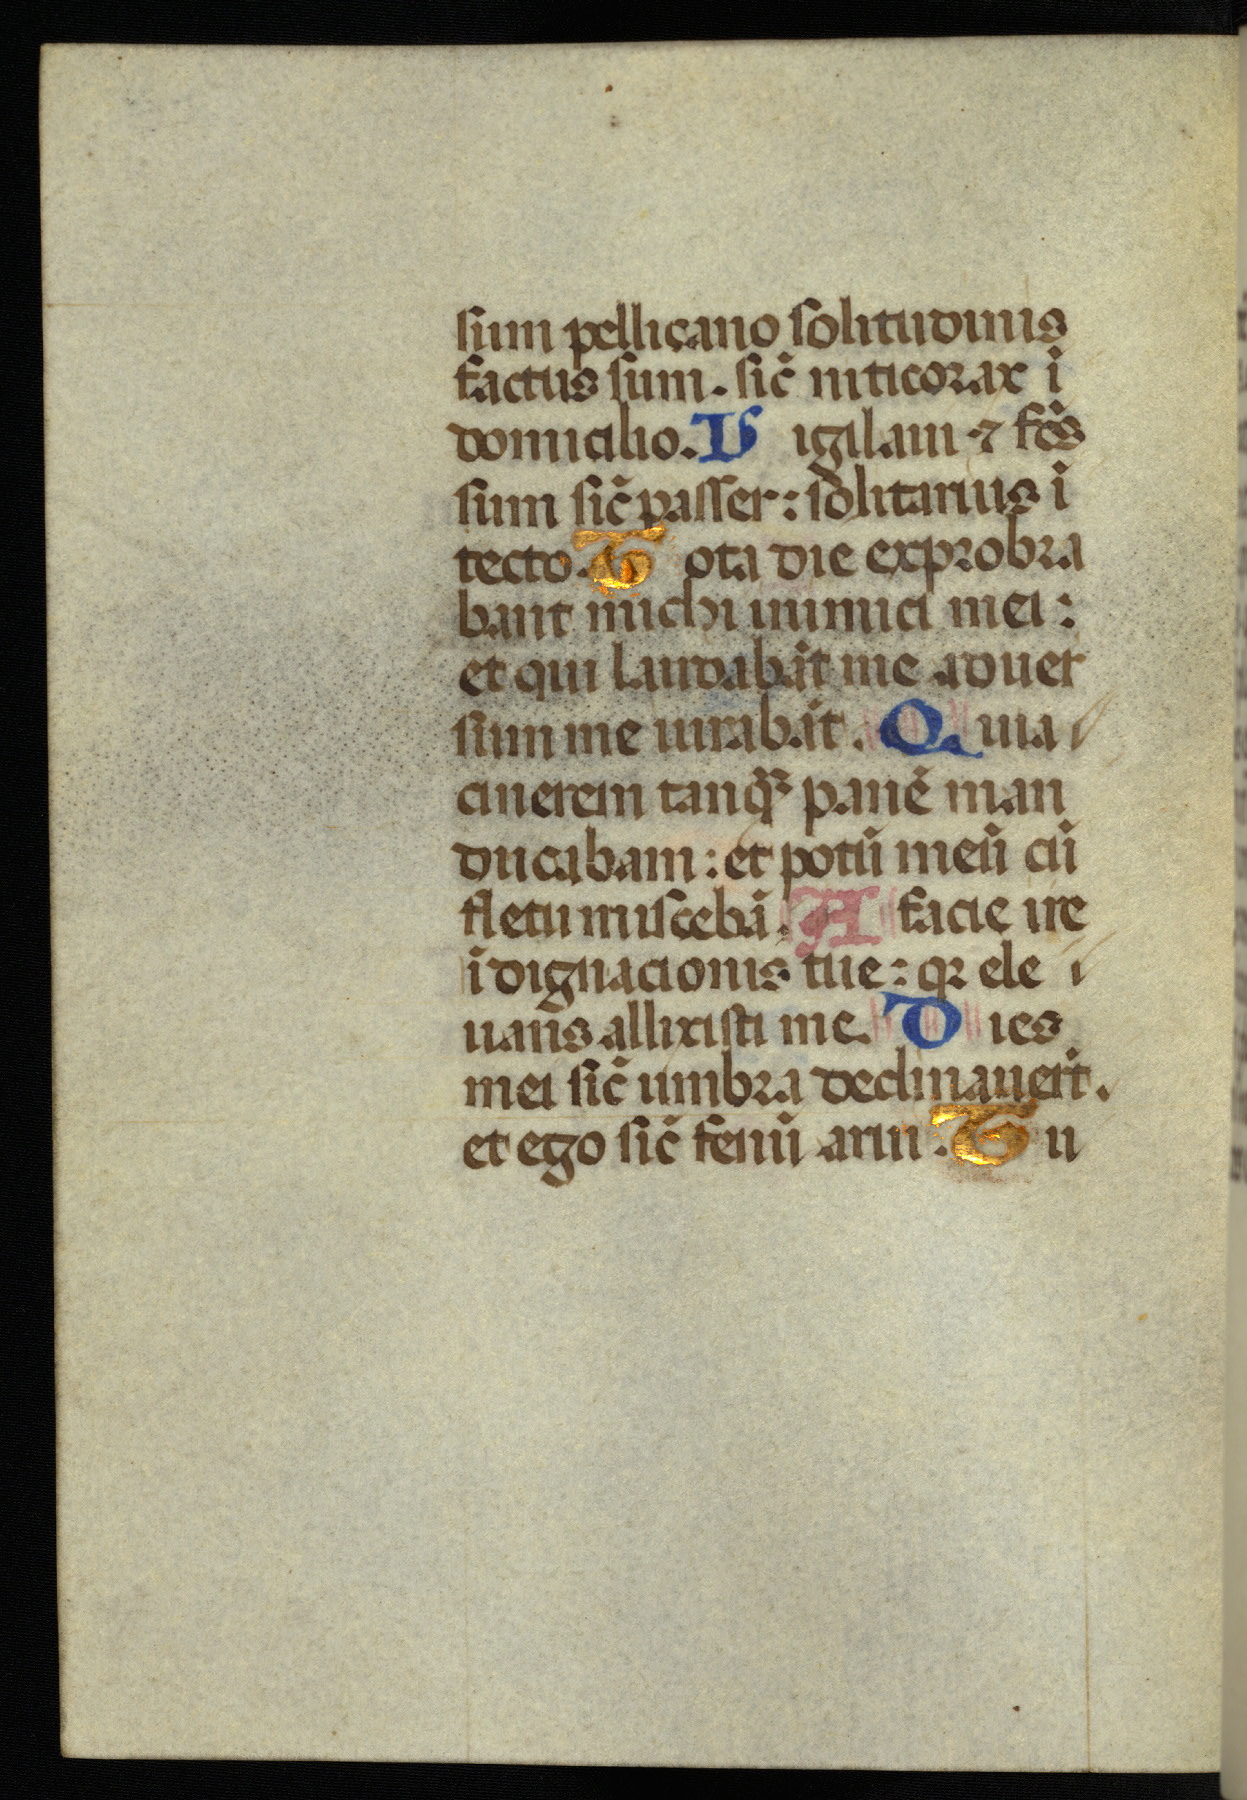 sum pellicano solitudinis
factus sum. sic̃ niticorax ī
domicilio. Vigilaui ⁊ fc̃s
sum sic̃ passer: solitarius ī
tecto. Tota die exprobra
bant michi inimici mei:
et qui laudabāt me aduer
sum me iurabāt. Quia
cinerem tanq̃ȝ panē man
ducabam: et potū meū cū
fletu miscebā. A facie ire
īdignacionis tue: qꝛ ele
uans allixisti me. Dies
mei sic̃ umbra declinauerūt.
et ego sic̃ fenū arui. Tu